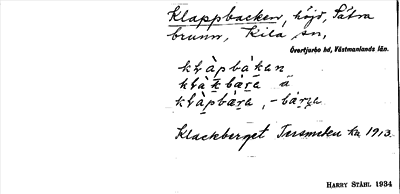 Klappbacken, höjd, Sätra
brunn, Kila sn,
Övertjurbo hd, Västmanlands län.
klàpbákan
klàkbæ̀ra ä
klàpbæ̀ra, -bǽrja
Klackberget Tersmeden ka 1913.
HARRY STÅHL 1934